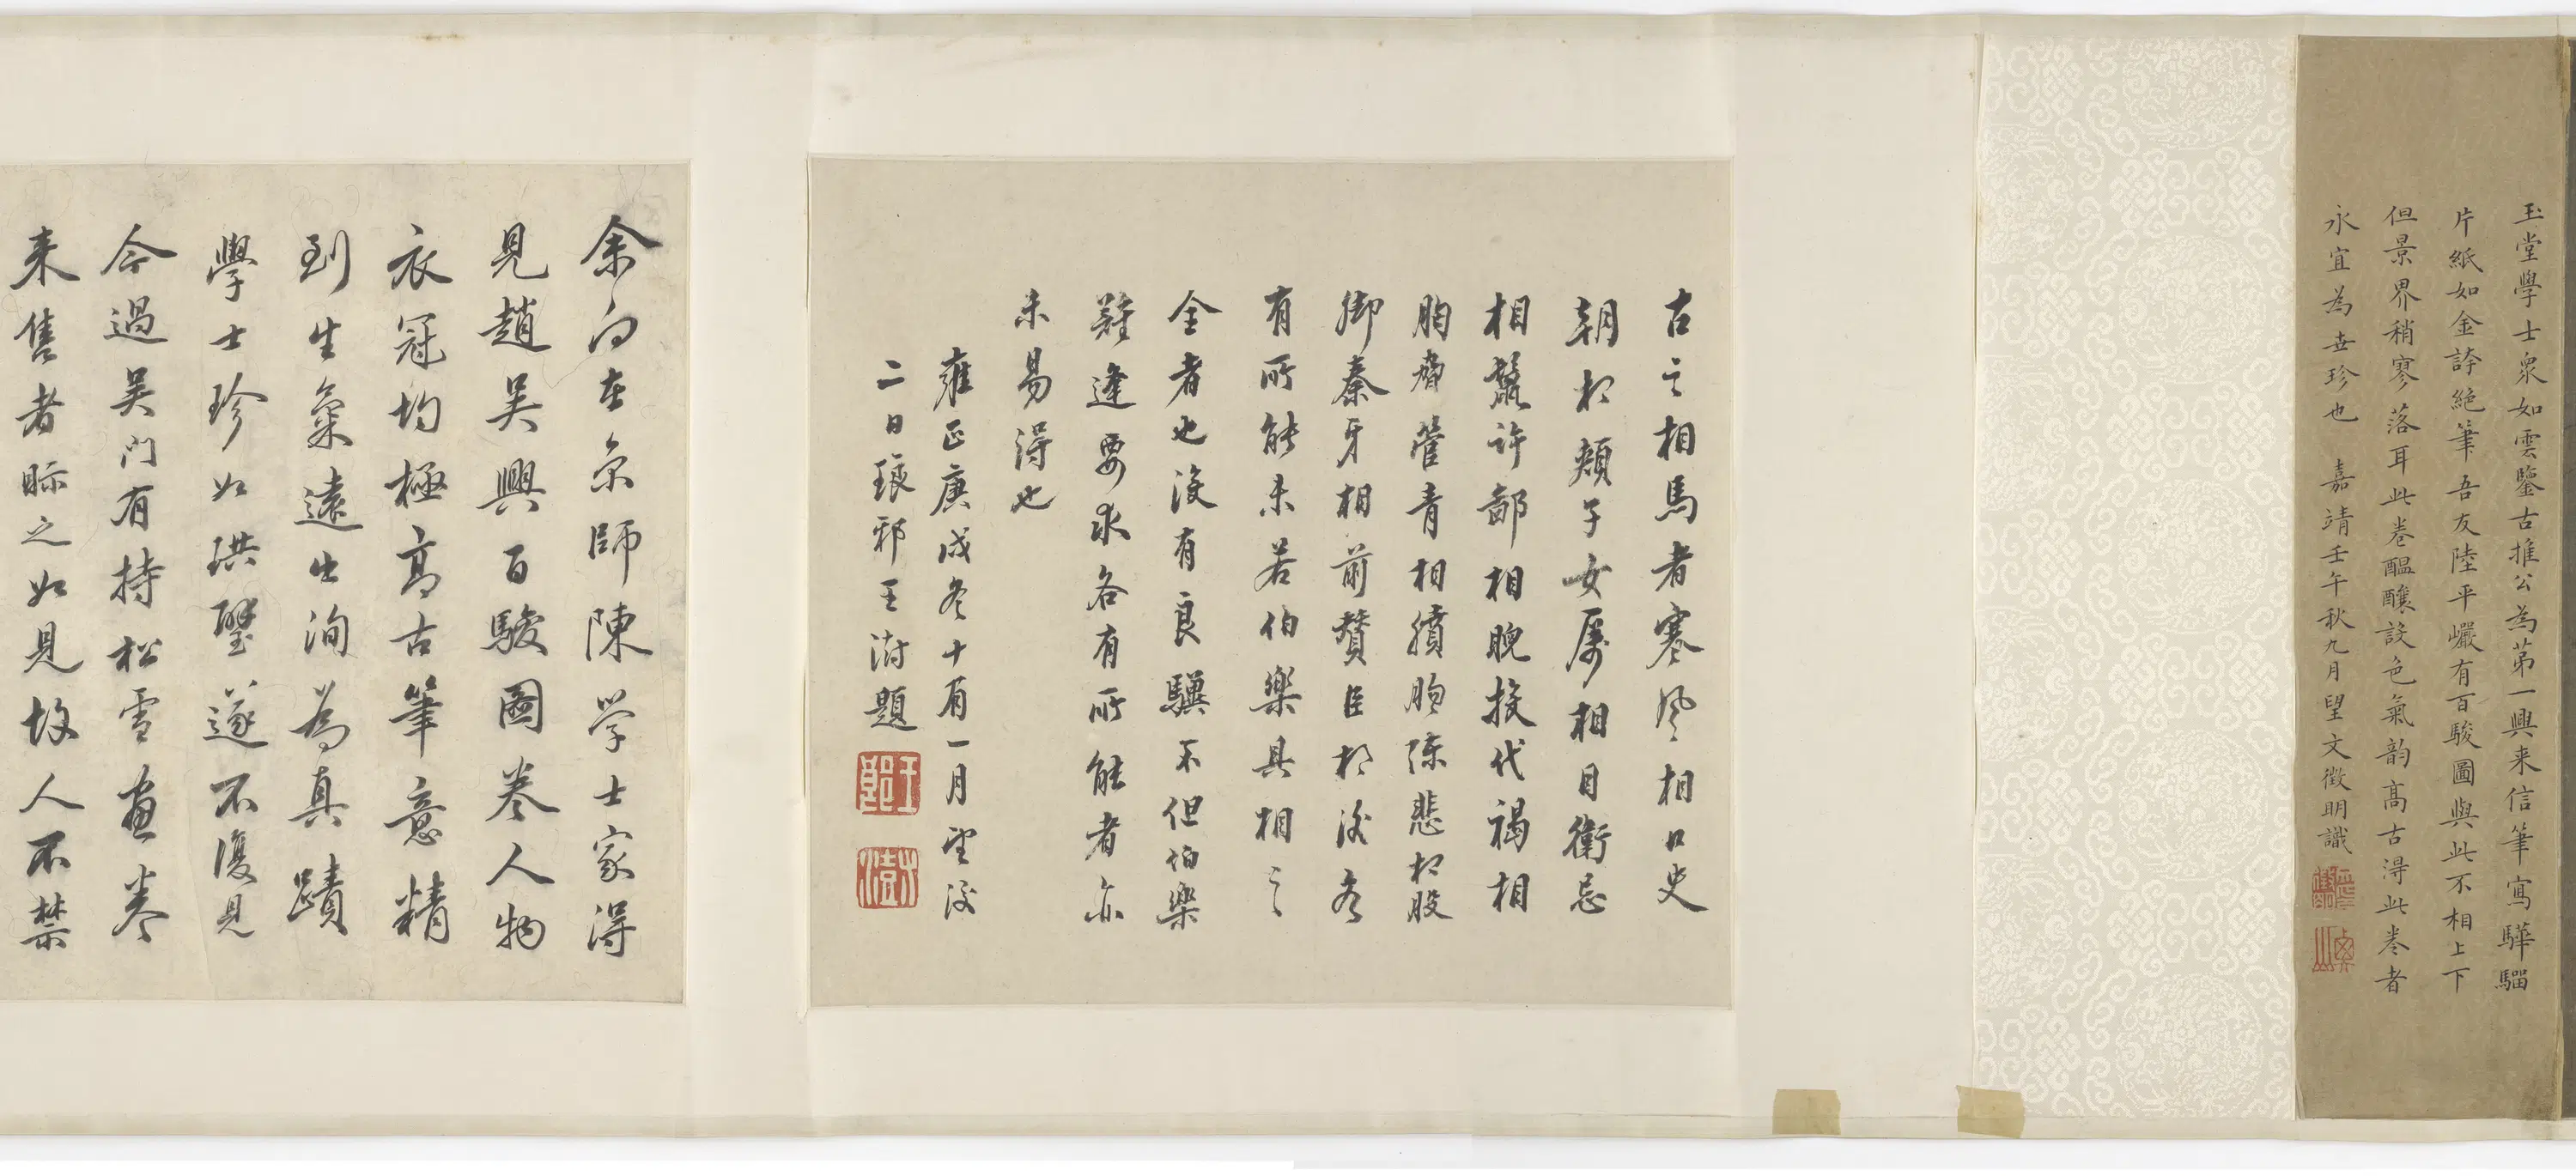 玉堂學士衆如雲鑒古推公為苐一興来信筆寫驊騮
片紙如金誇絶筆吾友陸平巖有百駿圖與此不相上下
但景界稍寥落耳此卷醞釀設色氣韵髙古得此卷者
永宜為世珍也 嘉靖壬午秋九月望文徵明識
古之相馬者寒風相口史
朝相頰子女厲相目衛忌
相髭許鄙相䐁投代褐相
胸脅管青相臏肳陳悲相股
脚秦牙相前贊君相後各
有所能未若伯樂具相之
全者也後有良驥不但伯樂
難逢要求各有所能者亦
未易得也
雍正庚戌冬十有一月望後
二日琅邪王澍題
余向在京師陳学士家得
見趙吳興百駿圖卷人物
衣冠均極高古筆意精
到生氣遠出洵為真蹟
學士珍如珙璧遂不復見
今過吳门有持松雪畫卷
来售者眎之如見故人不禁